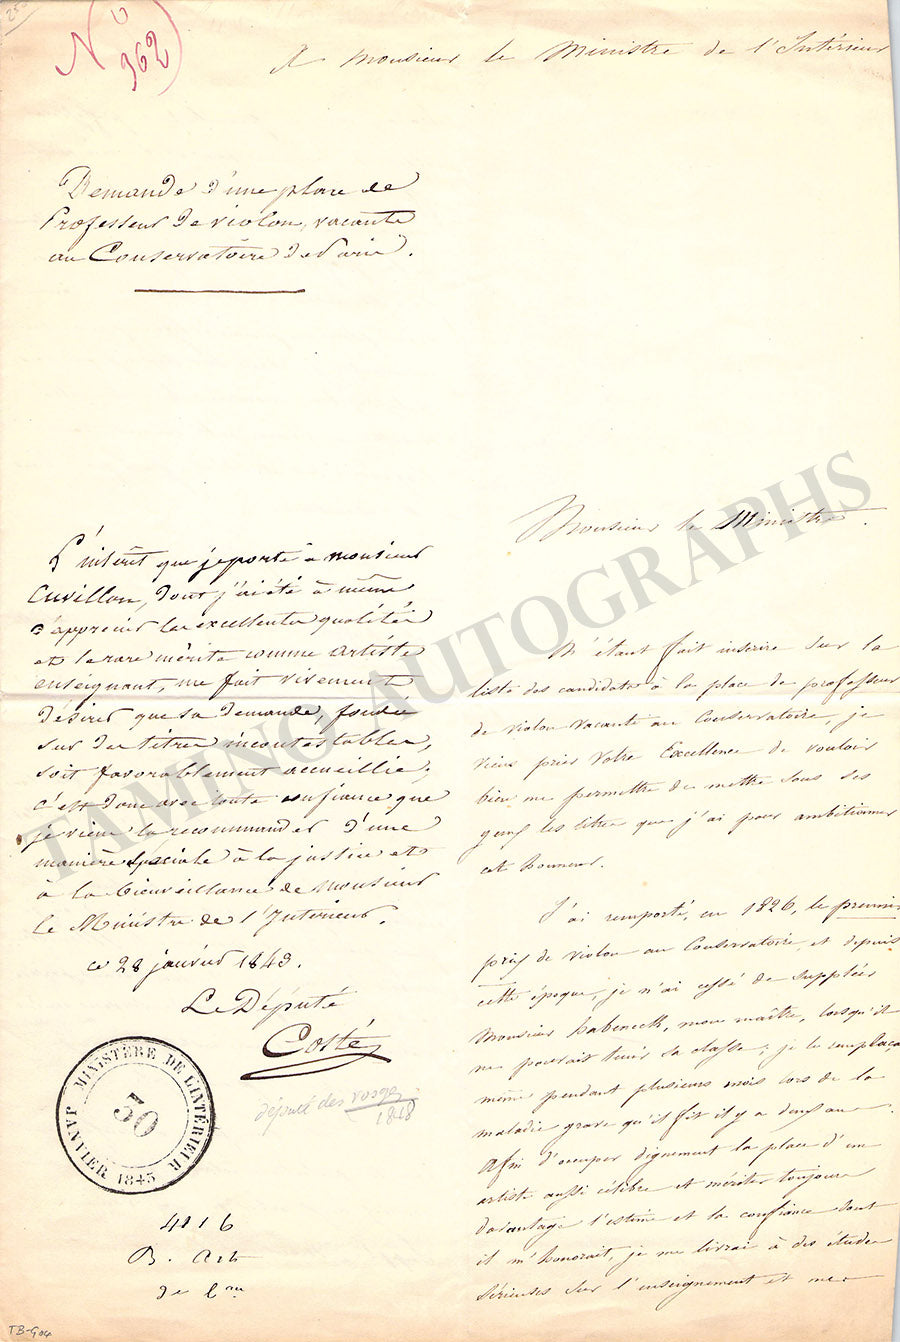 250
N° 362
A Monsieur le Ministre de l'Intérieur
Demande d'une place de
Professeur de violon, vacante
au Conservatoire de Paris.
L'intérêt que je porte à monsieur
Cuvillon, dont j'ai été à même
d'apprécier les excellentes qualités
et le rare mérite comme artiste
enseignant, me fait vivement
désirer que sa demande, fondée
sur des titres incontestables,
soit favorablement accueillie.
c'est donc avec toute confiance que
je viens la recommander d'une
manière spéciale à la justice et
à la bienveillance de monsieur
le Ministre de l'Intérieur.
ce 28 janvier 1843.
Le Député
Costé
député des vosges
1818
MINISTÈRE DE L'INTÉRIEUR
30
JANVIER 1843
4116
B. Arts
TB-G04
Monsieur le Ministre.
M'étant fait inscrire sur la
liste des candidats à la place de professeur
de violon vacante au Conservatoire, je
viens prier Votre Excellence de vouloir
bien me permettre de mettre sous ses
yeux les titres que j'ai pour ambitionner
cet honneur.
J'ai remporté, en 1826, le premier
prix de violon au Conservatoire, et depuis
cette époque, je n'ai cessé de suppléer
Monsieur habeneck, mon maître, lorsqu'il
ne pouvait tenir sa classe; je le remplaçai
même pendant plusieurs mois lors de la
maladie grave qu'il fit il y a deux ans.
Afin d'occuper dignement la place d'un
artiste aussi célèbre et mériter toujours
davantage l'estime et la confiance dont
il m'honorait, je me livrai à des études
sérieuses sur l'enseignement et me
TAMINO AUTOGRAPHS